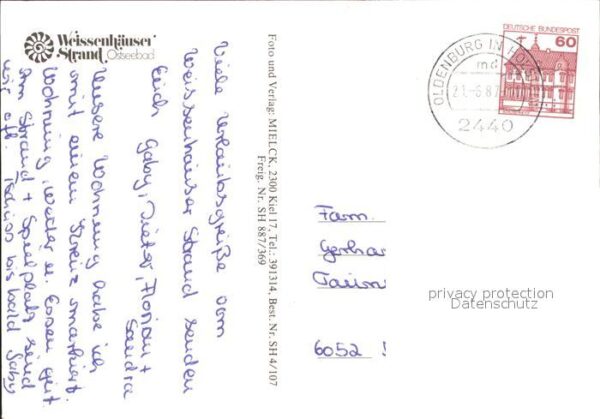 Weissenhäuser
Strand Ostseebad
Viele Urlaubsgrüße vom
Weissenhäuser Strand senden
Euch Gaby, Dieter, Florian +
Sandra
Unsere Wohnung habe ich
mit einem Kreuz markiert.
Wohnung, Wetter u. Essen gut.
Am Strand + Spielplatz sind
wir oft. Tschüss bis bald Gaby
Foto und Verlag: MIELCK, 2300 Kiel 17, Tel.: 391314, Best. Nr. SH 4/107
Freig. Nr. SH 887/369
DEUTSCHE BUNDESPOST
60
OLDENBURG IN HOL
md
21.-6.87
2440
Fam.
Gerhar
privacy protection
Datenschutz
6052